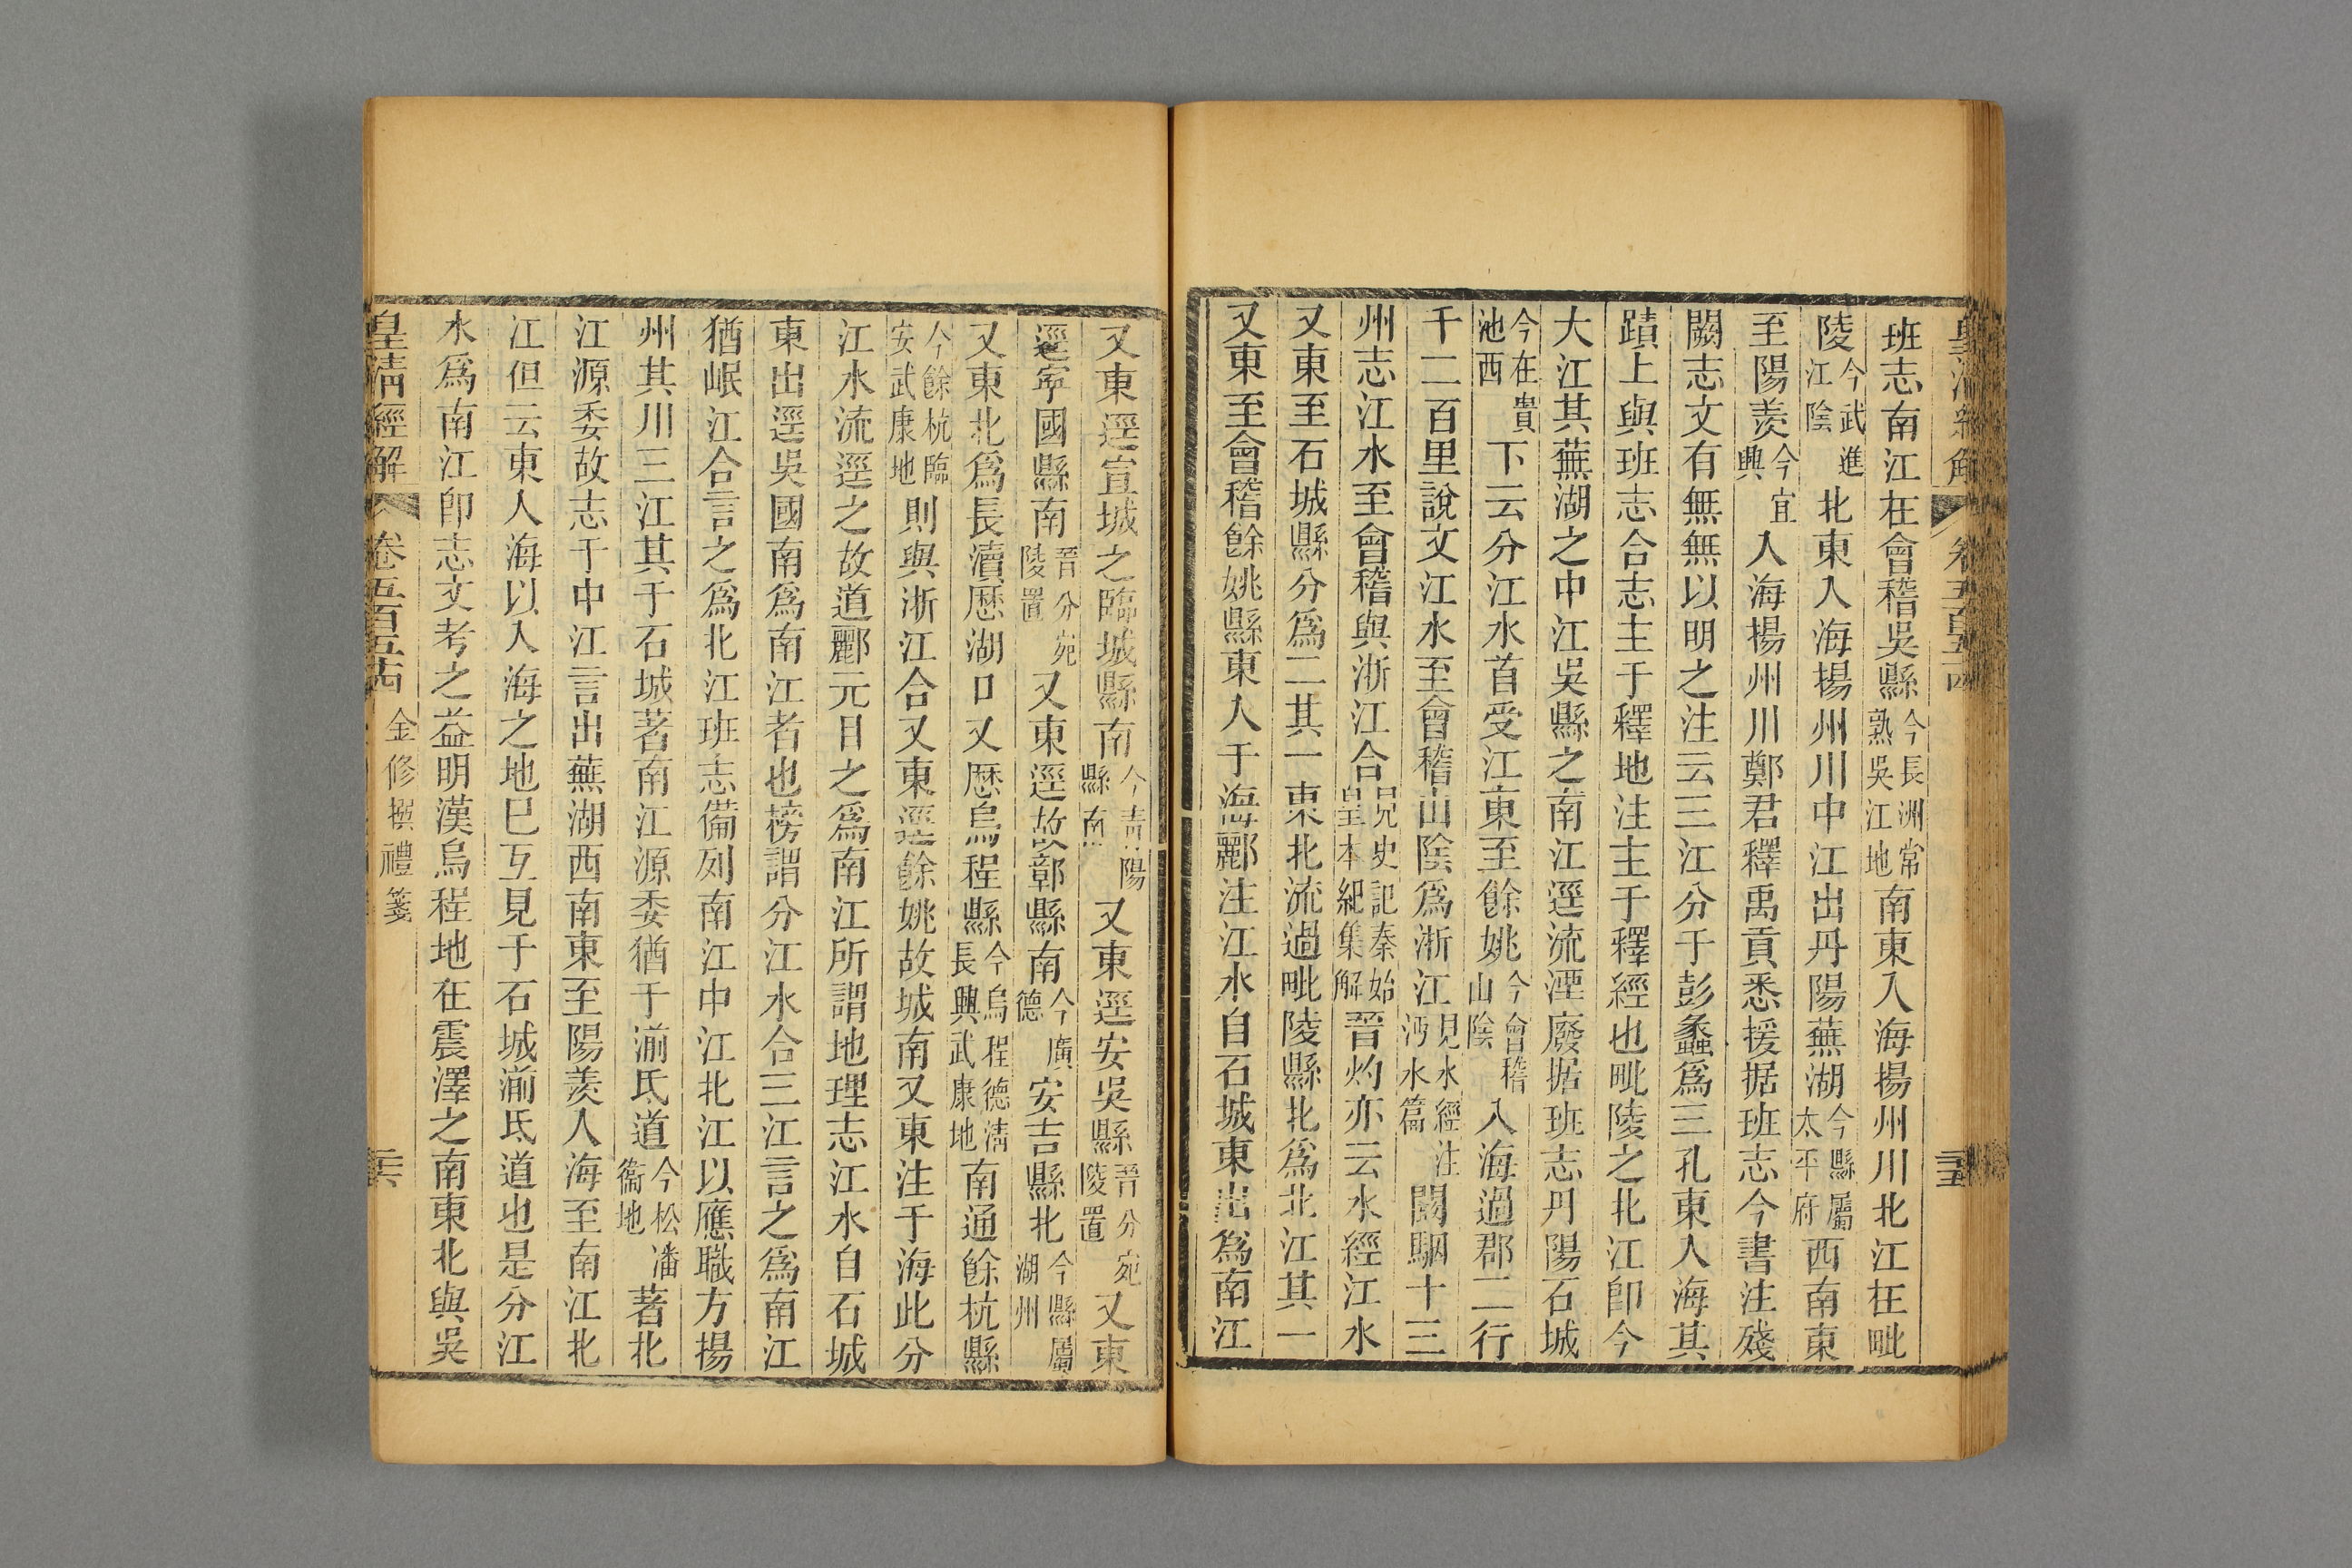 皇清經解 卷五百五十四 三五
班志南江在會稽吳縣今長洲常熟吳江地南東入海揚州川北江在毗
陵今武進江陰北東入海揚州川中江出丹陽蕪湖今縣屬太平府西南東
至陽羡今宜興入海揚州川鄭君釋禹貢悉援据班志今書注殘
闕志文有無無以明之注云三江分于彭蠡爲三孔東入海其
蹟上與班志合志主于釋地注主于釋經也毗陵之北江卽今
大江其蕪湖之中江吳縣之南江逕流湮廢据班志丹陽石城
今在貴池西下云分江水首受江東至餘姚今會稽山陰入海過郡二行
千二百里說文江水至會稽山陰爲浙江見水經注沔水篇闞駰十三
州志江水至會稽與浙江合見史記秦始皇本紀集解晉灼亦云水經江水
又東至石城縣分爲二其一東北流過毗陵縣北爲北江其一
又東至會稽餘姚縣東入于海酈注江水自石城東出爲南江
又東逕宣城之臨城縣南今青陽縣南又東逕安吳縣晉分宛陵置又東
逕寧國縣南晉分宛陵置又東逕故鄣縣南今廣德安吉縣北今縣屬湖州
又東北爲長瀆歷湖口又歷烏程縣今烏程德清長興武康地南通餘杭縣
今餘杭臨安武康地則與浙江合又東逕餘姚故城南又東注于海此分
江水流逕之故道酈元目之爲南江所謂地理志江水自石城
東出逕吳國南爲南江者也榜謂分江水合三江言之爲南江
猶岷江合言之爲北江班志備列南江中江北江以應職方揚
州其川三江其于石城著南江源委猶于湔氐道今松潘衞地著北
江源委故志于中江言出蕪湖西南東至陽羡入海至南江北
江但云東入海以入海之地已互見于石城湔氐道也是分江
水爲南江卽志文考之益明漢烏程地在震澤之南東北與吳
皇清經解 卷五百五十四 金修撰禮箋 三六